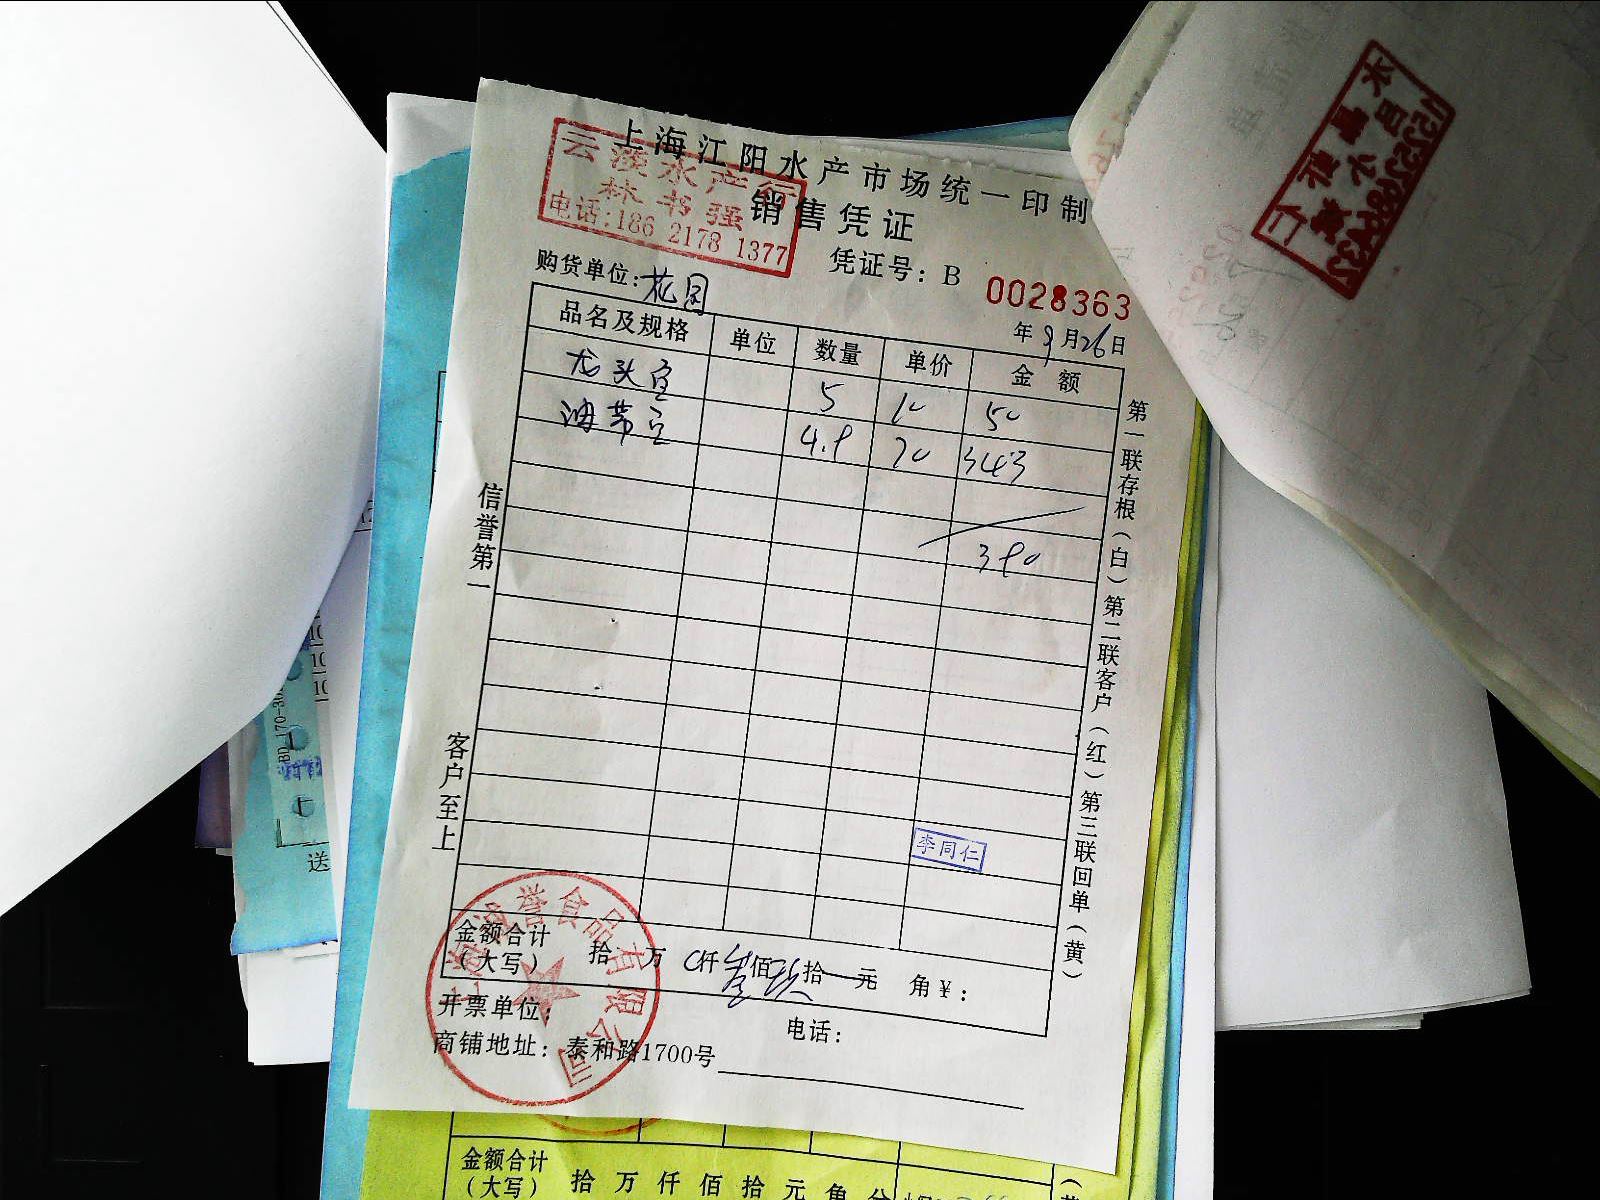 上海江阳水产市场统一印制
销售凭证
云淡水产行
林书强
电话:186 2178 1377
凭证号：B 0028363
购货单位:花园
年9月26日
品名及规格 单位 数量 单价 金额
龙头 5 10 50
油带 4.9 70 343
390
信誉第一
客户至上
第一联存根（白）第二联客户（红）第三联回单（黄）
李同仁
金额合计（大写） 拾 万 仟 叁佰玖拾 元 角 ¥：
开票单位：
电话：
商铺地址：泰和路1700号
誉食品有限公司
送
金额合计（大写） 拾 万 仟 佰 拾 元 角 分